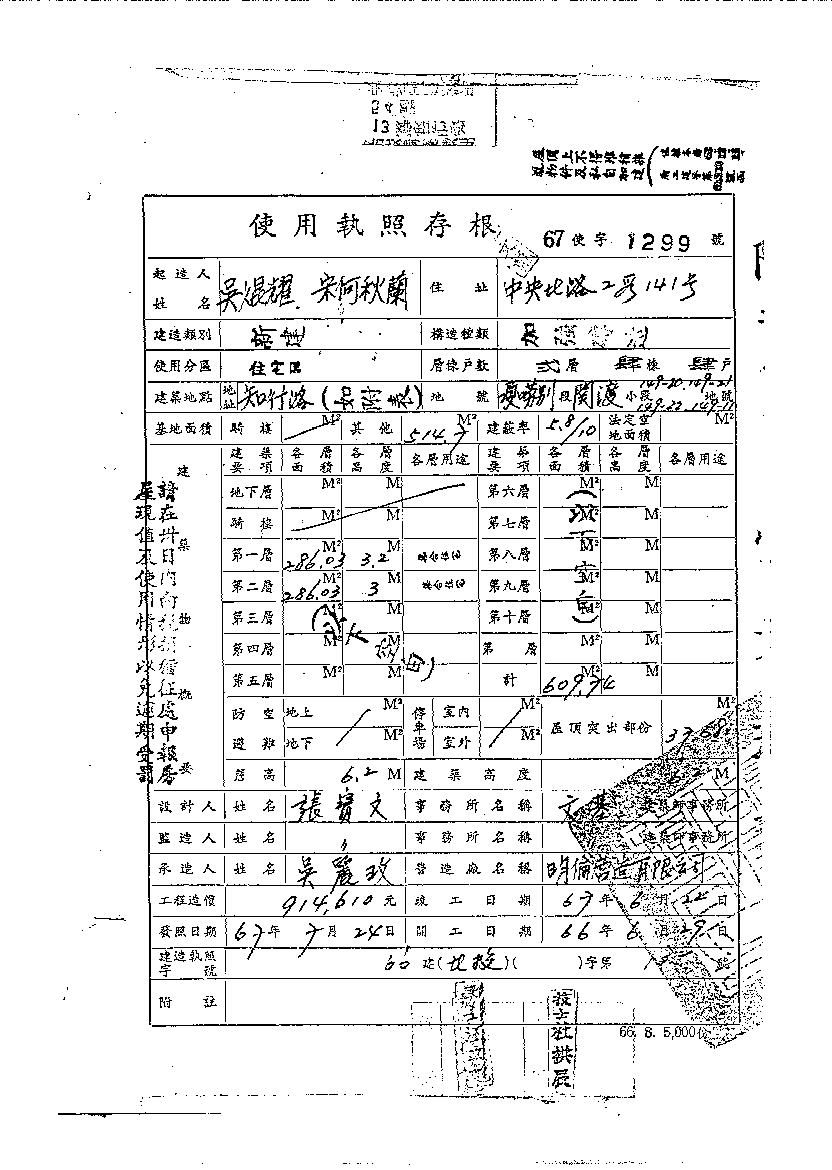 屋頂上不得堆積雜
使用執照存根
67 使字 1299 號
起造人姓名 吳焜耀 宋何秋蘭 住址 中央北路2段141号
建造類別 構造種類
使用分區 住宅區 層棟戶數 弍層 肆棟 肆戶
建築地點 地址 知行路( 地號 嗄嘮別段關渡小段 149-20.149-21 149-22.149-11 地號
基地面積 騎樓 M² 其他 514.7 M² 建蔽率 5.8/10 法定空地面積 M²
建築要項 各層面積 各層高度 各層用途 建築要項 各層面積 各層高度 各層用途
地下層 M² M 第六層 M² M
騎樓 M² M 第七層 M² M
第一層 286.03 M² 3.2 M 第八層 M² M
第二層 286.03 M² 3 M 第九層 M² M
第三層 M² M 第十層 M² M
第四層 M² M 第 層 M² M
第五層 M² M 計 609.74 M² M
(以下空白)
(以下空白)
防空避難 地上 M² 停車場 室內 M² 屋頂突出部份 37.68 M²
地下 M² 室外 M²
簷高 6.2 M 建築高度 6.2 M
設計人 姓名 張寶文 事務所名稱 文基 建築師事務所
監造人 姓名 〃 事務所名稱 建築師事務所
承造人 姓名 吳麗玫 營造廠名稱 明倫營造有限公司
工程造價 914,610 元 竣工日期 67年6月22日
發照日期 67年7月24日 開工日期 66年6月29日
建造執照字號 66 建(北投)( )字第 號
附註
66. 8. 5,000份
建築物概要
請在卅日內向稅捐稽征處申報房
屋現值及使用情形以免逾期受罰